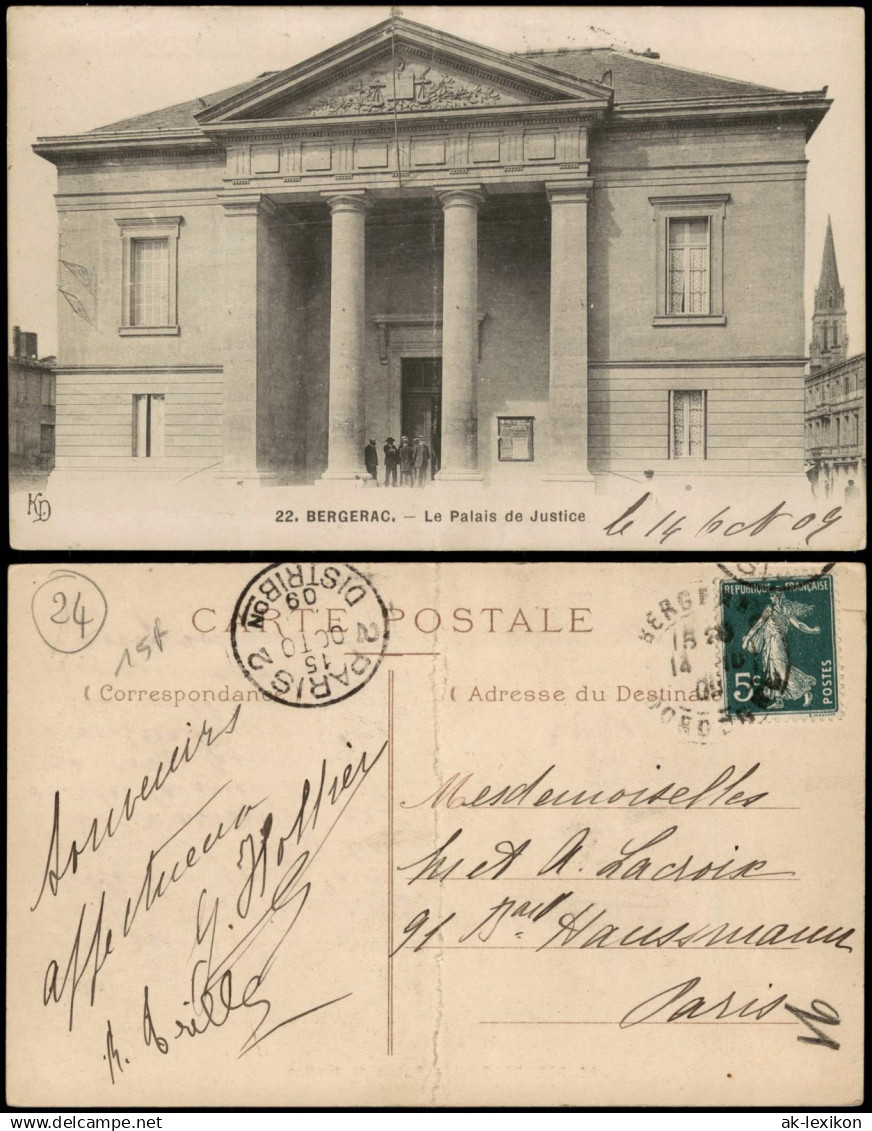 KD
22. BERGERAC. — Le Palais de Justice
le 14 Oct 09
24
15f
CARTE POSTALE
PARIS 2
DISTRIBON
15
OCT
09
BERGERAC
15
14
09
DORDOGNE
REPUBLIQUE FRANÇAISE
5c
POSTES
( Correspondance
( Adresse du Destinataire
Souvenirs
affectueux
G. Hollier
Mesdemoiselles
M et A. Lacroix
91 Bard Haussmann
Paris
ak-lexikon.com